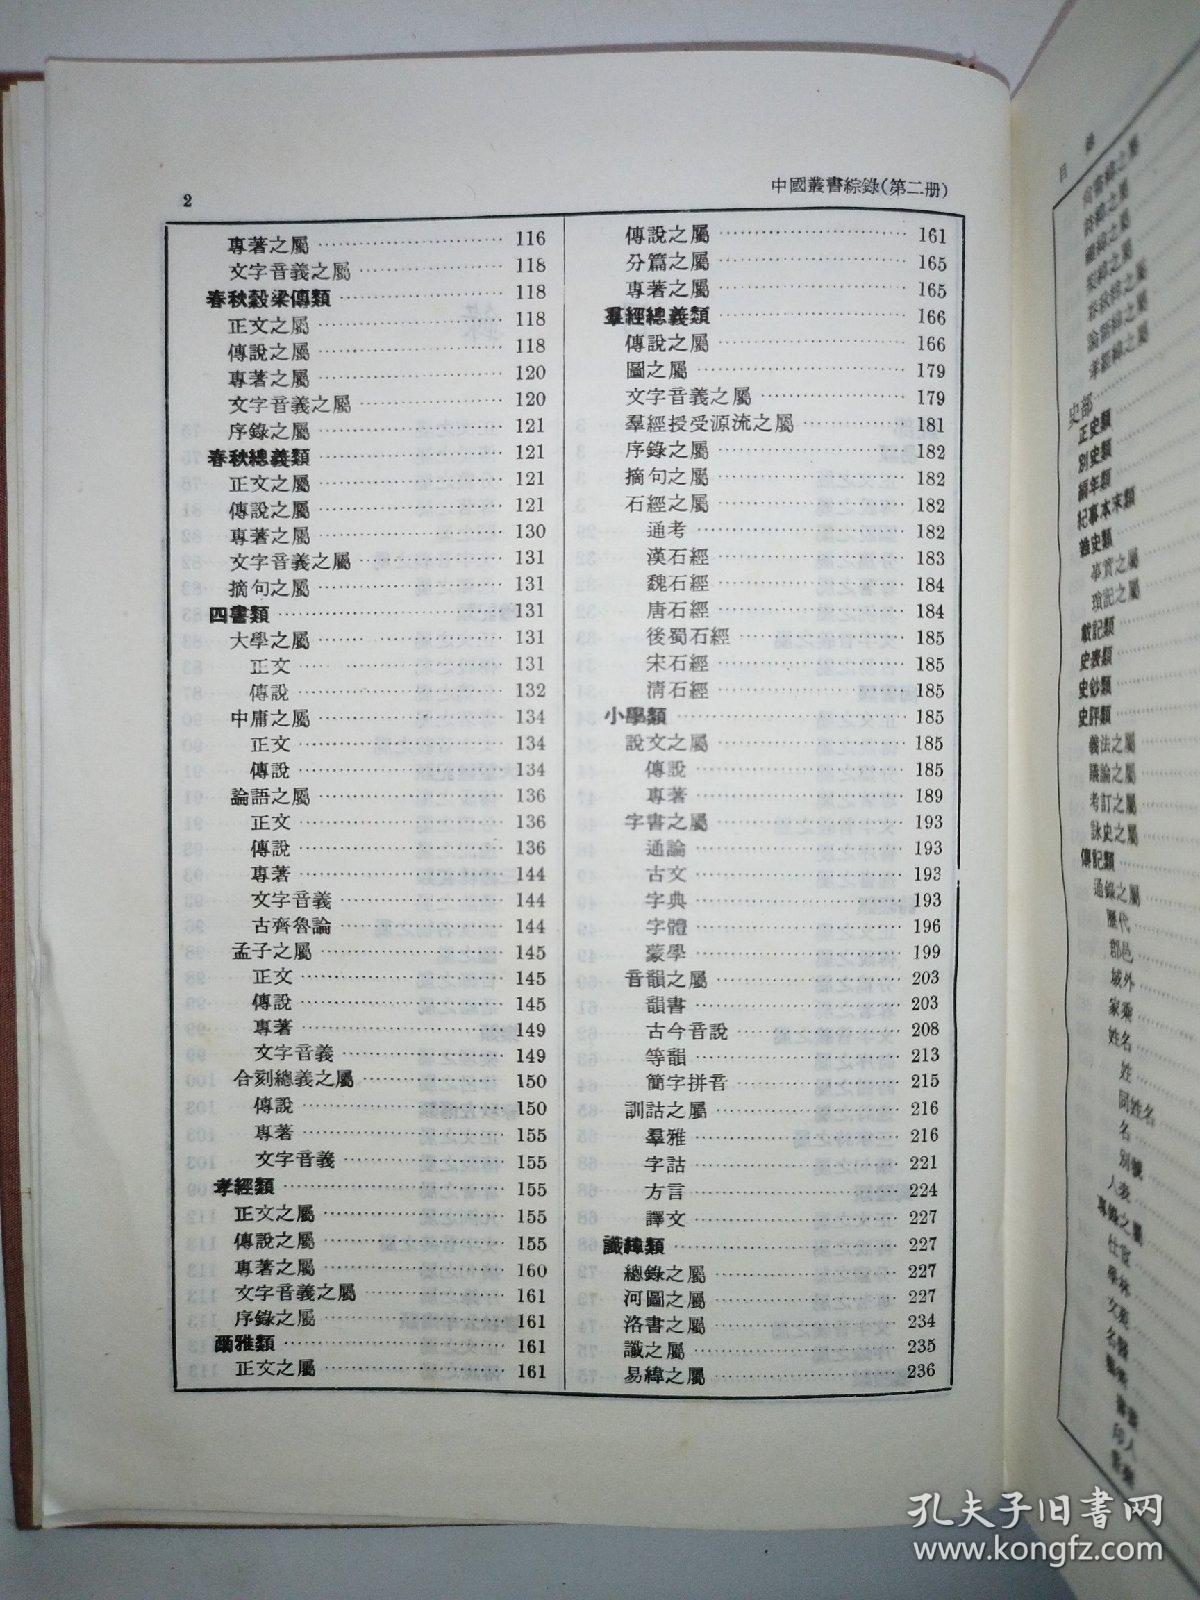 2
中國叢書綜錄(第二册)
專著之屬 116
文字音義之屬 118
春秋穀梁傳類 118
正文之屬 118
傳說之屬 118
專著之屬 120
文字音義之屬 120
序錄之屬 121
春秋總義類 121
正文之屬 121
傳說之屬 121
專著之屬 130
文字音義之屬 131
摘句之屬 131
四書類 131
大學之屬 131
正文 131
傳說 132
中庸之屬 134
正文 134
傳說 134
論語之屬 136
正文 136
傳說 136
專著 144
文字音義 144
古齊魯論 144
孟子之屬 145
正文 145
傳說 145
專著 149
文字音義 149
合刻總義之屬 150
傳說 150
專著 155
文字音義 155
孝經類 155
正文之屬 155
傳說之屬 155
專著之屬 160
文字音義之屬 161
序錄之屬 161
爾雅類 161
正文之屬 161
傳說之屬 161
分篇之屬 165
專著之屬 165
羣經總義類 166
傳說之屬 166
圖之屬 179
文字音義之屬 179
羣經授受源流之屬 181
序錄之屬 182
摘句之屬 182
石經之屬 182
通考 182
漢石經 183
魏石經 184
唐石經 184
後蜀石經 185
宋石經 185
清石經 185
小學類 185
說文之屬 185
傳說 185
專著 189
字書之屬 193
通論 193
古文 193
字典 193
字體 196
蒙學 199
音韻之屬 203
韻書 203
古今音說 208
等韻 213
簡字拼音 215
訓詁之屬 216
羣雅 216
字詁 221
方言 224
譯文 227
讖緯類 227
總錄之屬 227
河圖之屬 227
洛書之屬 234
讖之屬 235
易緯之屬 236
目錄
尚書緯之屬
詩緯之屬
禮緯之屬
樂緯之屬
春秋緯之屬
論語緯之屬
孝經緯之屬
史部
正史類
別史類
編年類
紀事本末類
雜史類
事實之屬
瑣記之屬
載記類
史表類
史鈔類
史評類
義法之屬
議論之屬
考訂之屬
詠史之屬
傳記類
通錄之屬
歷代
郡邑
域外
家乘
姓名
姓
同姓名
名
別號
人表
專錄之屬
仕宦
學林
文苑
名醫
藝術
書畫
印人
音樂
孔夫子旧书网
www.kongfz.com